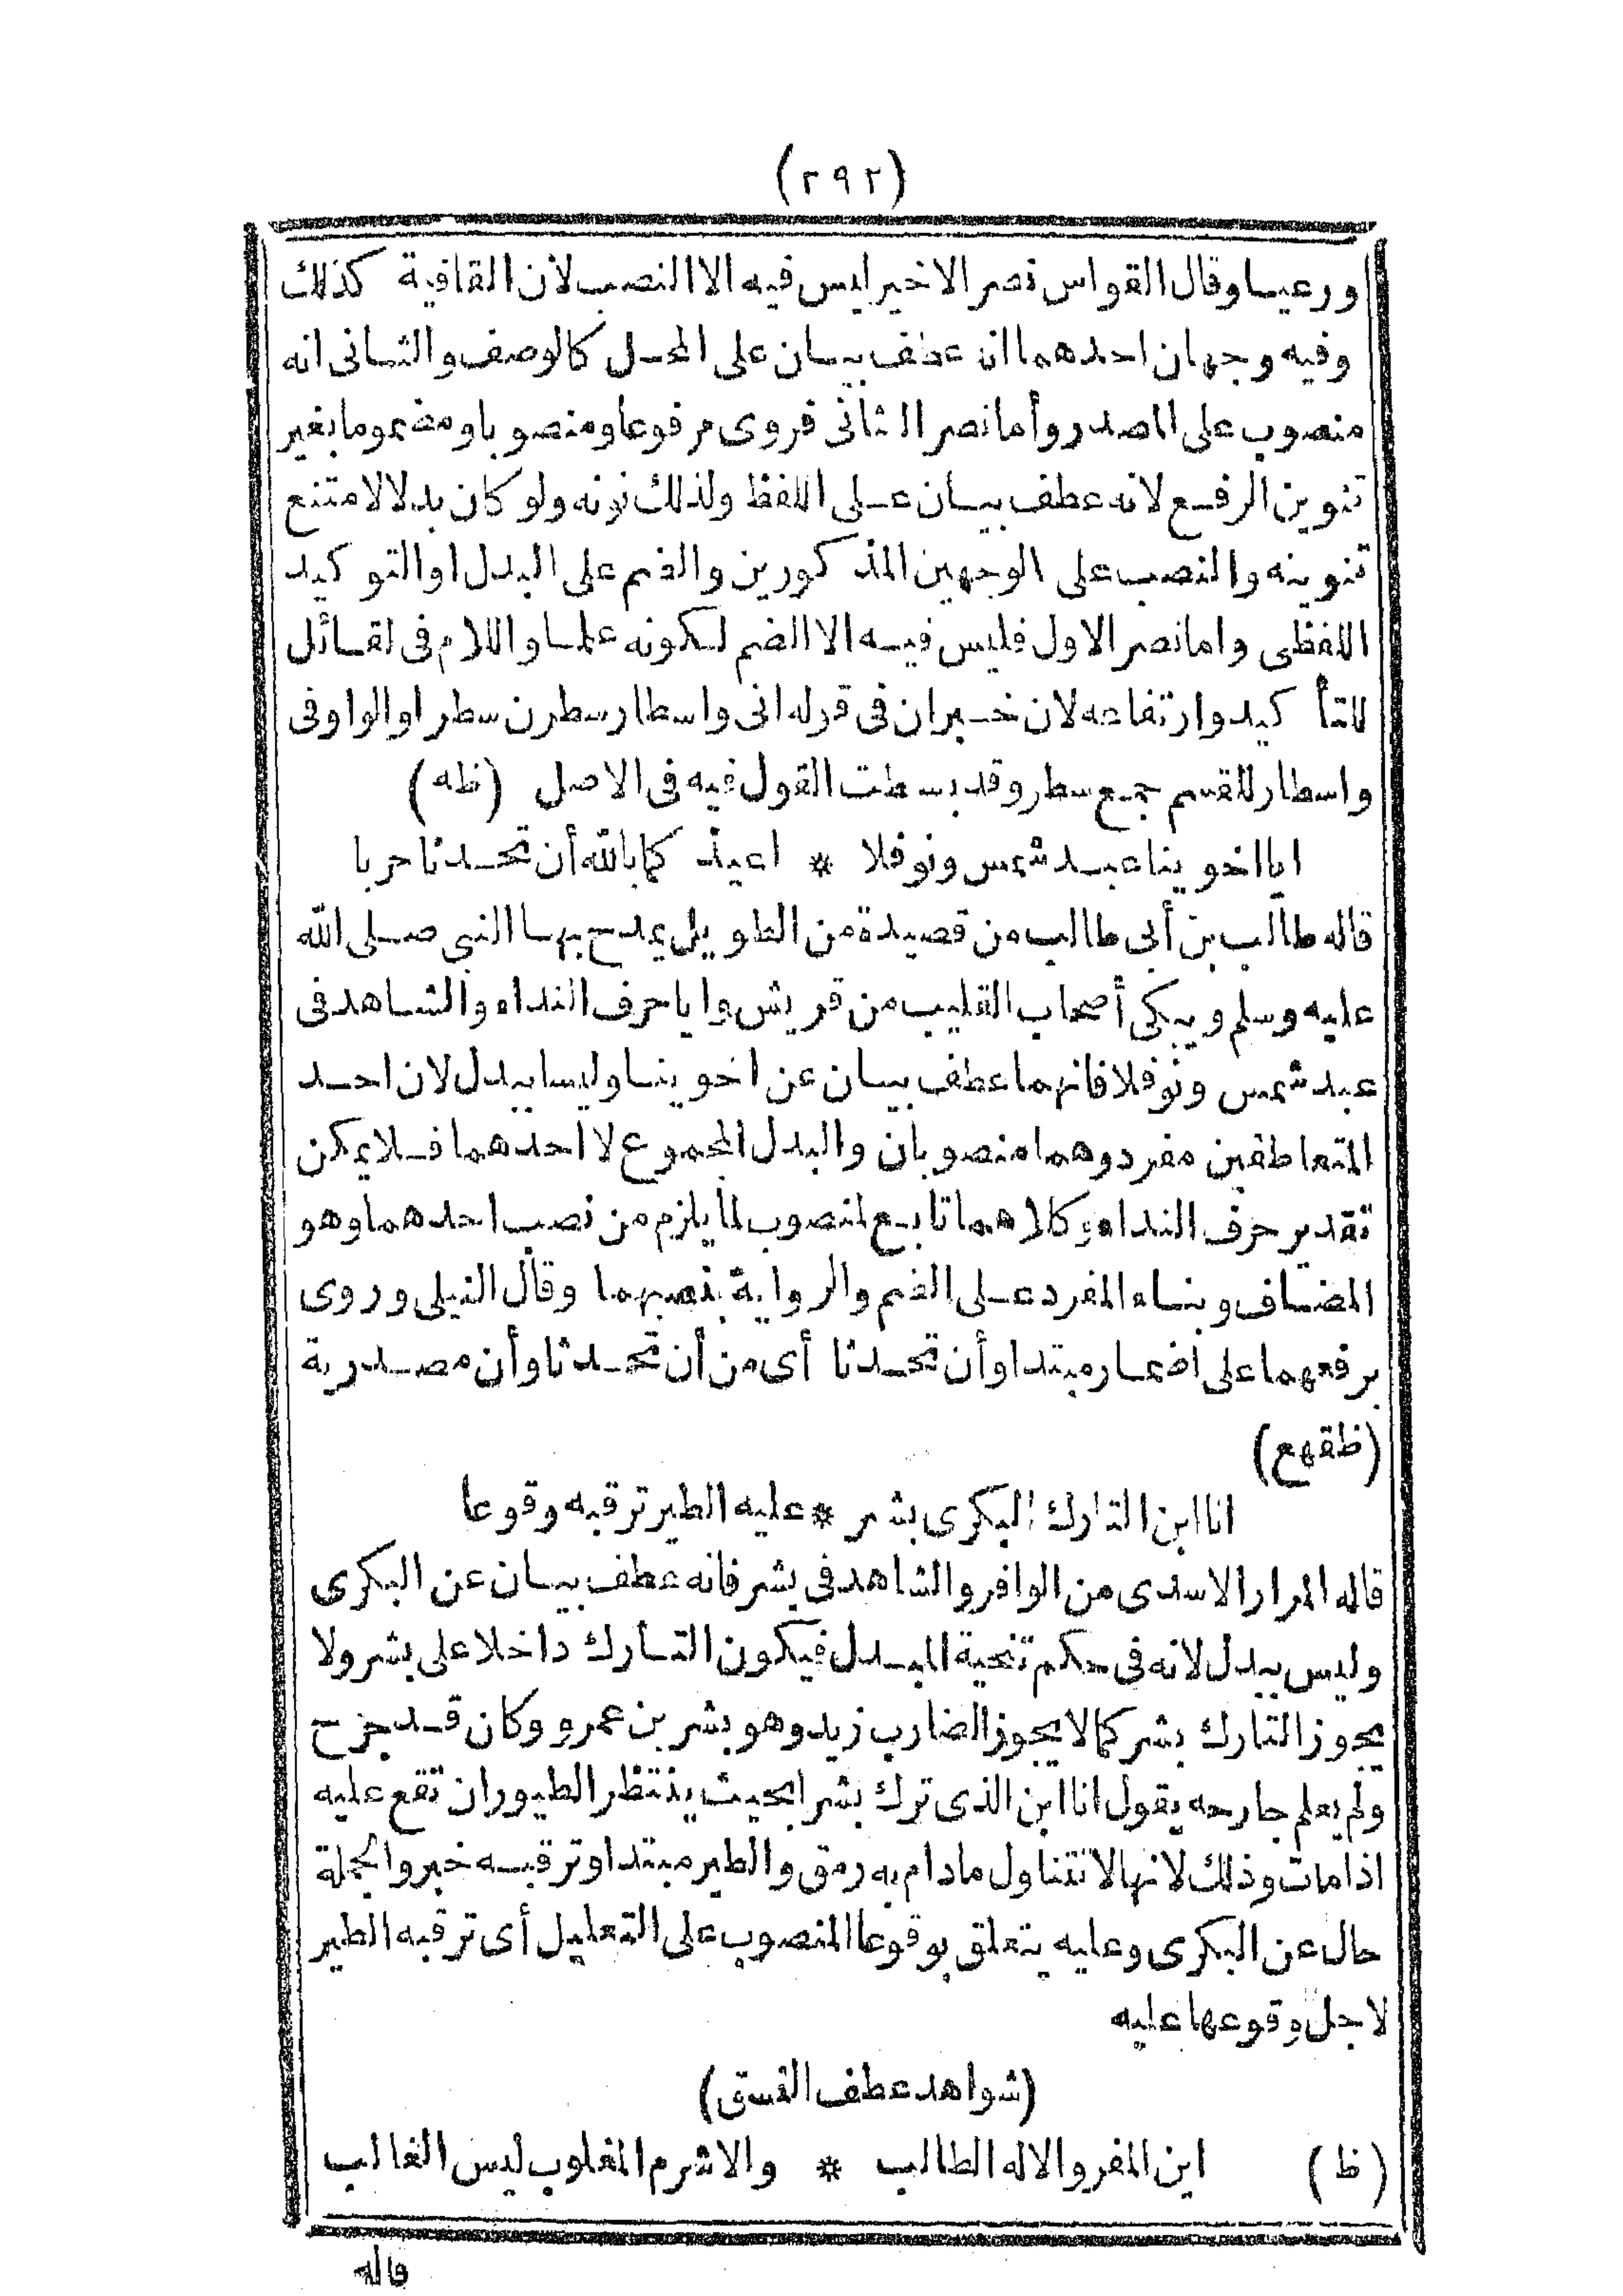 (٢٩٢)
ورعيا وقال القواس نصر الاخير ليس فيه الا النصب لان القافية كذلك
وفيه وجهان احدهما انه عطف بيان على المحل كالوصف والثانى انه
منصوب على المصدر وأما نصر الثانى فروى مرفوعا ومنصوبا ومضموما بغير
تنوين الرفع لانه عطف بيان على اللفظ ولذلك نونه ولو كان بدلا لامتنع
تنوينه والنصب على الوجهين المذكورين والضم على البدل او التوكيد
اللفظى واما نصر الاول فليس فيه الا الضم لكونه علما واللام فى لقائل
للتأكيد وارتفاعه لان خبر ان فى قوله انى واسطار سطرن سطرا والواو فى
واسطار للقسم جمع سطر وقد بسطت القول فيه فى الاصل (ظه)
ايا اخوينا عبد شمس ونوفلا * اعيذكما بالله أن تحدثا حربا
قاله طالب بن أبى طالب من قصيدة من الطويل يمدح بها النبي صلى الله
عليه وسلم ويبكى أصحاب القليب من قريش وايا حرف النداء والشاهد فى
عبد شمس ونوفلا فانهما عطف بيان عن اخوينا وليسا ببدل لان احد
المتعاطفين مفرد وهما منصوبان والبدل المجموع لا احدهما فلا يمكن
تقدير حرف النداء وكلاهما تابع لمنصوب لما يلزم من نصب احدهما وهو
المضاف وبناء المفرد على الضم والرواية بنصبهما وقال النيلى وروى
برفعهما على اضمار مبتدا وأن تحدثا أى من أن تحدثا وأن مصدرية
(ظقهع)
انا ابن التارك البكرى بشر * عليه الطير ترقبه وقوعا
قاله المرار الاسدى من الوافر والشاهد فى بشر فانه عطف بيان عن البكرى
وليس ببدل لانه فى حكم تنحية المبدل فيكون التارك داخلا على بشر ولا
يجوز التارك بشر كما لا يجوز الضارب زيد وهو بشر بن عمرو وكان قد جرح
ولم يعلم جارحه يقول انا ابن الذى ترك بشرا بحيث ينتظر الطيور ان تقع عليه
اذا مات وذلك لانها لا تتناول مادام به رمق والطير مبتدا وترقبه خبر والجملة
حال عن البكرى وعليه يتعلق بوقوعا المنصوب على التعليل أى ترقبه الطير
لاجل وقوعها عليه
(شواهد عطف النسق)
(ظ) اين المفر والاله الطالب * والاشرم المغلوب ليس الغالب
قاله